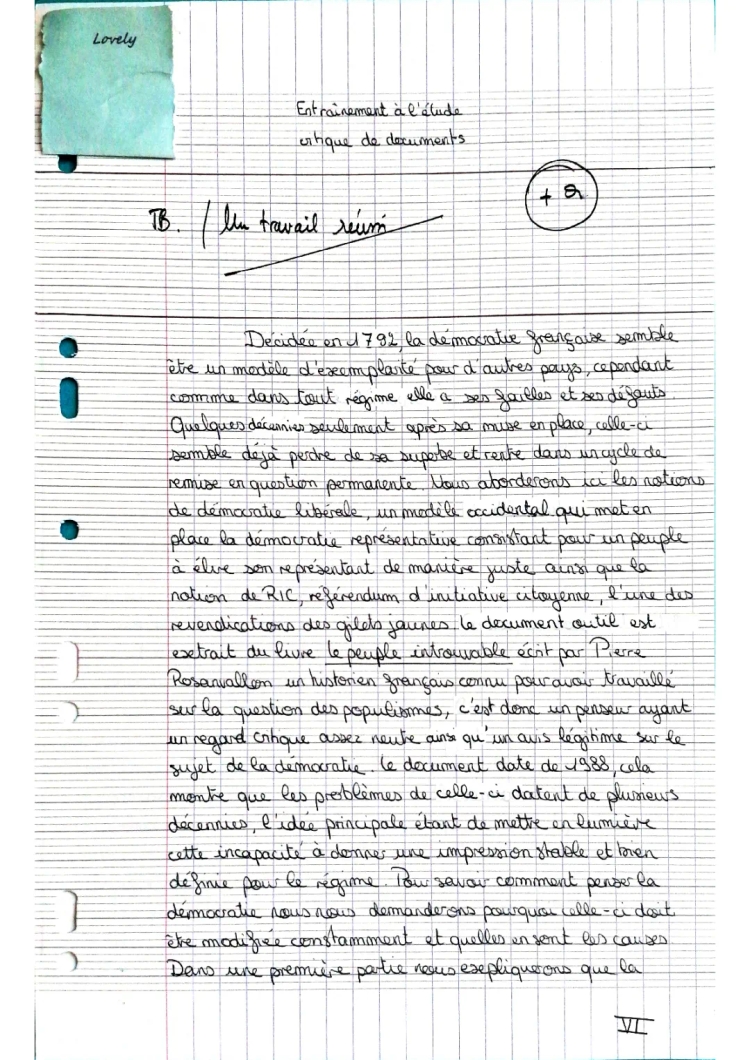 Lovely
Entrainement à l'étude
critique de documents
+ 2
TB. / Un travail réussi
Décidée en 1792, la démocratie française semble
être un modèle d'exemplarité pour d'autres pays, cependant
comme dans tout régime elle a ses failles et ses défauts.
Quelques décennies seulement après sa mise en place, celle-ci
semble déjà perdre de sa superbe et rentre dans un cycle de
remise en question permanente. Nous aborderons ici les notions
de démocratie libérale, un modèle occidental qui met en
place la démocratie représentative consistant pour un peuple
à élire son représentant de manière juste ainsi que la
notion de RIC, référendum d'initiative citoyenne, l'une des
revendications des gilets jaunes. le document outil est
extrait du livre le peuple introuvable écrit par Pierre
Rosanvallon un historien français connu pour avoir travaillé
sur la question des populismes, c'est donc un penseur ayant
un regard critique assez neutre ainsi qu'un avis légitime sur le
sujet de la démocratie. Le document date de 1988, cela
montre que les problèmes de celle-ci datent de plusieurs
décennies, l'idée principale étant de mettre en lumière
cette incapacité à donner une impression stable et bien
définie pour le régime. Pour savoir comment penser la
démocratie nous nous demanderons pourquoi celle-ci doit
être modifiée constamment et quelles en sont les causes
Dans une première partie nous expliquerons que la
VI